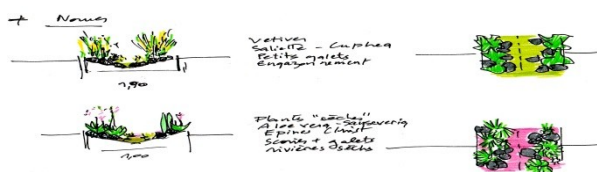 + Noues
Vetiver
- Cuphea
Petits galets
Engazonnement
1,90
Plants "sèches"
Aloe vera - Sanseveria
Epines Christ
Scories + galets
rivières sèches
1,00